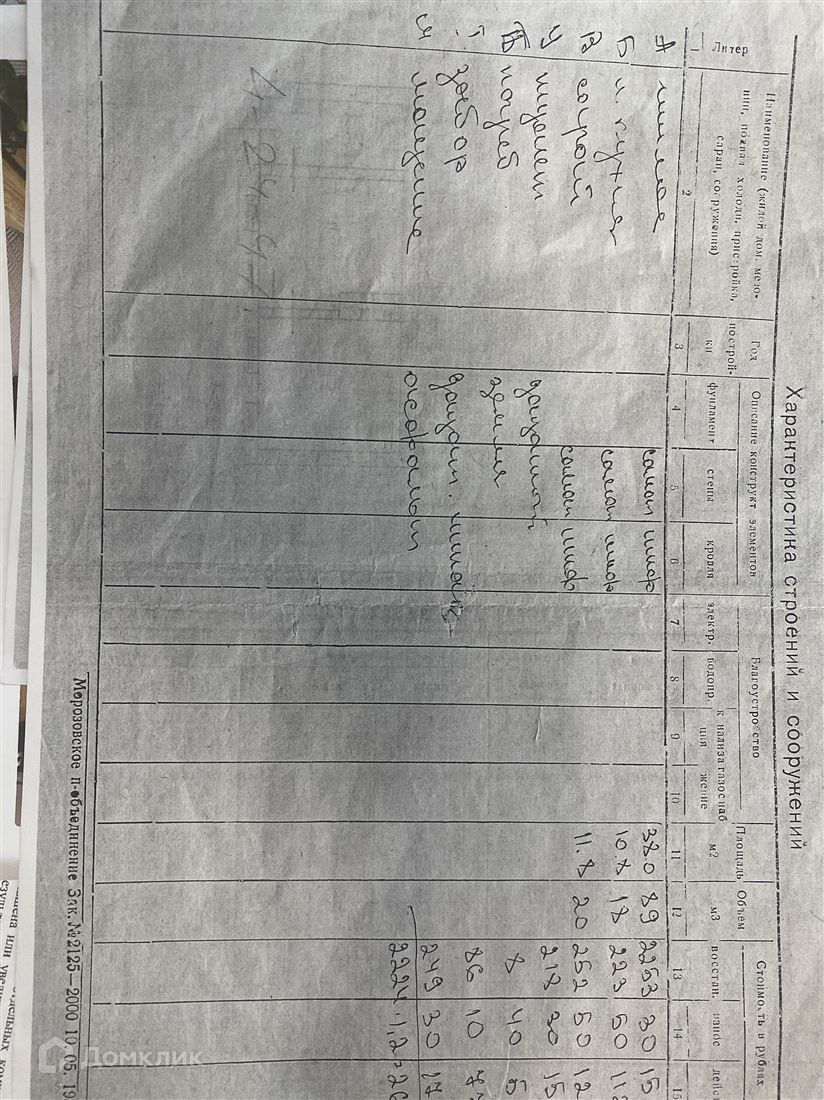 Характеристика строений и сооружений
Литер
Наименование (жилой дом, мезо-
нин, подвал, холодн. пристройка,
сараи, сооружения)
Год
построй-
ки
Описание конструкт элементов
фундамент
стены
кровля
Благоустройство
электр.
водопр.
канализа
ция
газоснаб
жение
Площадь
м2
Объем
м3
Стоимость в рублях
восстан.
износ
дейст
1 2 3 4 5 6 7 8 9 10 11 12 13 14 15
А жилое саман шифер 38.0 89 2253 30 15
Б л. кухня саман шифер 10.8 18 223 50 11
В сарай саман шифер 11.8 20 252 50 12
У туалет дощатый 218 30 15
погреб земля 8 40 5
забор дощат. штак. 86 10 7
мощение асфальт 249 30 17
Морозовское п-объединение Зак. №2125—2000 10. 05. 19
Домклик